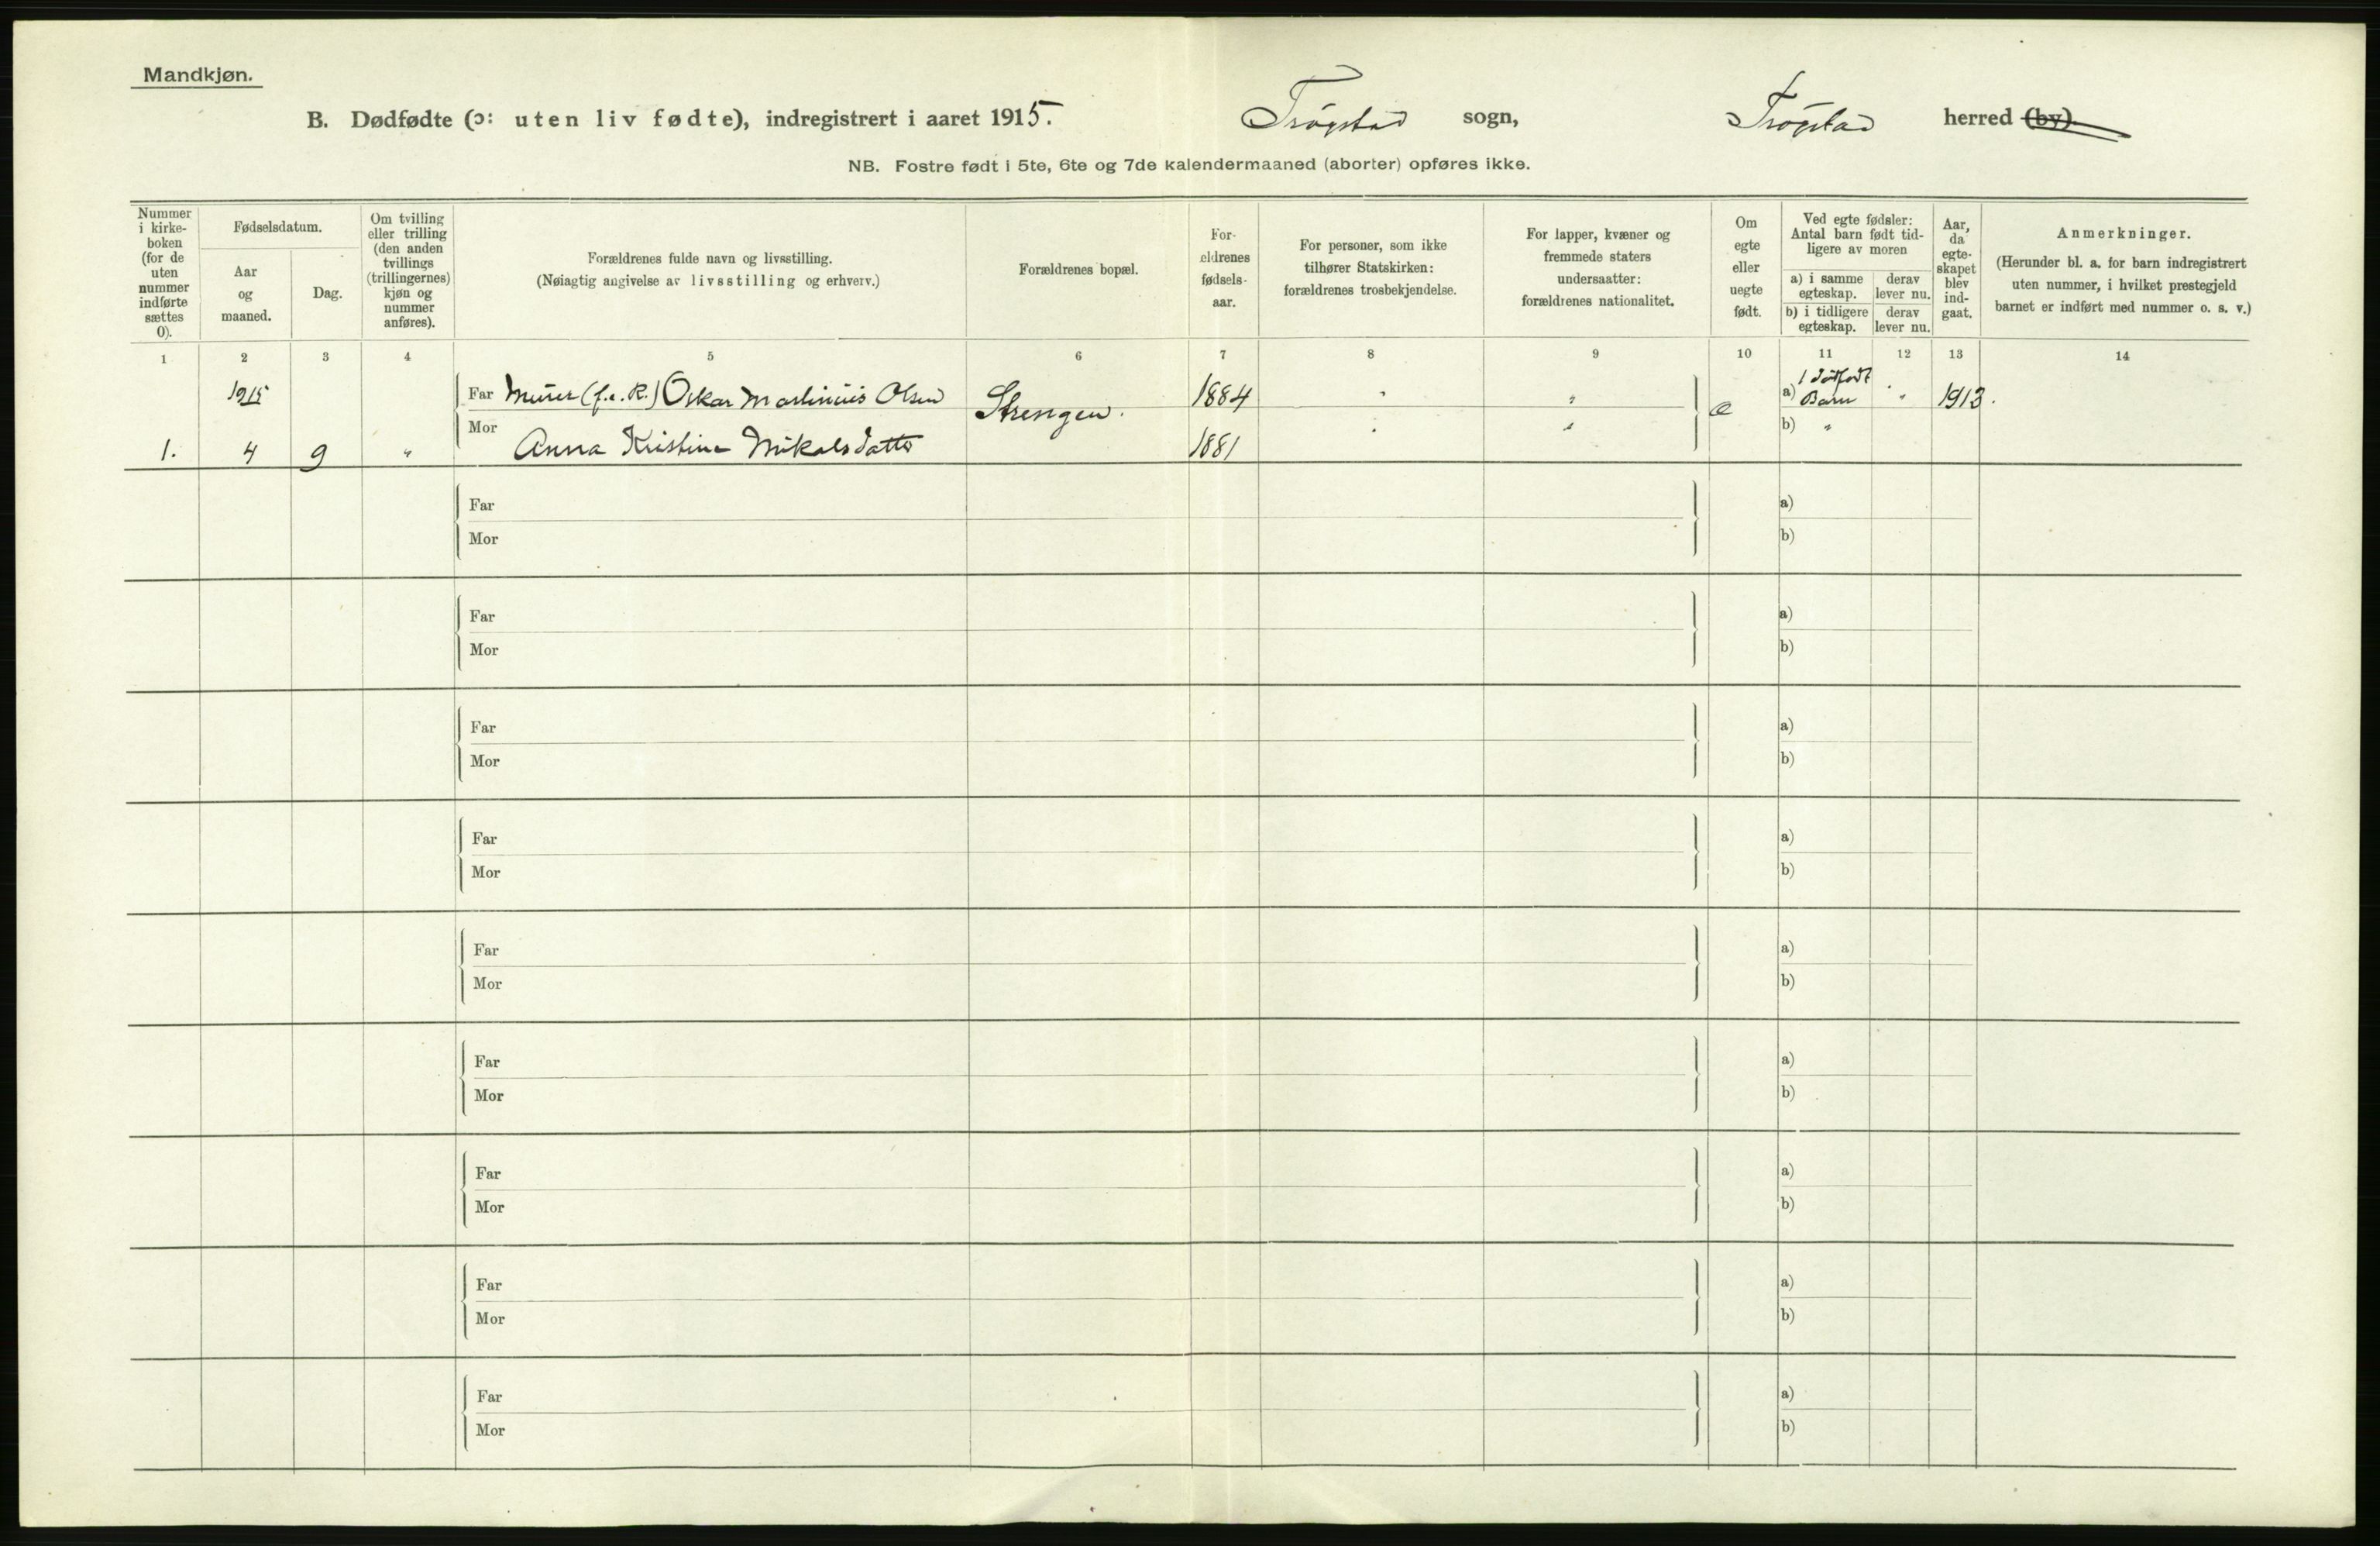 Mandkjøn.
B. Dødfødte (ɔ: uten liv fødte), indregistrert i aaret 1915. Trøgstad sogn, Trøgstad herred (by).
NB. Fostre født i 5te, 6te og 7de kalendermaaned (aborter) opføres ikke.
Nummer i kirke-boken (for de uten nummer indførte sættes 0).
Fødselsdatum.
Aar og maaned.
Dag.
Om tvilling eller trilling (den anden tvillings (trillingernes) kjøn og nummer anføres).
Forældrenes fulde navn og livsstilling.
(Nøiagtig angivelse av livsstilling og erhverv.)
Forældrenes bopæl.
For-ældrenes fødsels-aar.
For personer, som ikke tilhører Statskirken: forældrenes trosbekjendelse.
For lapper, kvæner og fremmede staters undersaatter: forældrenes nationalitet.
Om egte eller uegte født.
Ved egte fødsler: Antal barn født tid-ligere av moren
a) i samme egteskap. derav lever nu.
b) i tidligere egteskap. derav lever nu.
Aar, da egte-skapet blev ind-gaat.
Anmerkninger.
(Herunder bl. a. for barn indregistrert uten nummer, i hvilket prestegjeld barnet er indført med nummer o. s. v.)
1 2 3 4 5 6 7 8 9 10 11 12 13 14
1915 Far Murer (f.e.R.) Oskar Martinius Olsen Strengen. 1884 " " æ a) 1 dødfødt Barn " 1913.
Mor " " b) "
1. 4 9 " Anna Kristine Mikalsdatter 1881
Far a)
Mor b)
Far a)
Mor b)
Far a)
Mor b)
Far a)
Mor b)
Far a)
Mor b)
Far a)
Mor b)
Far a)
Mor b)
Far a)
Mor b)
Far a)
Mor b)